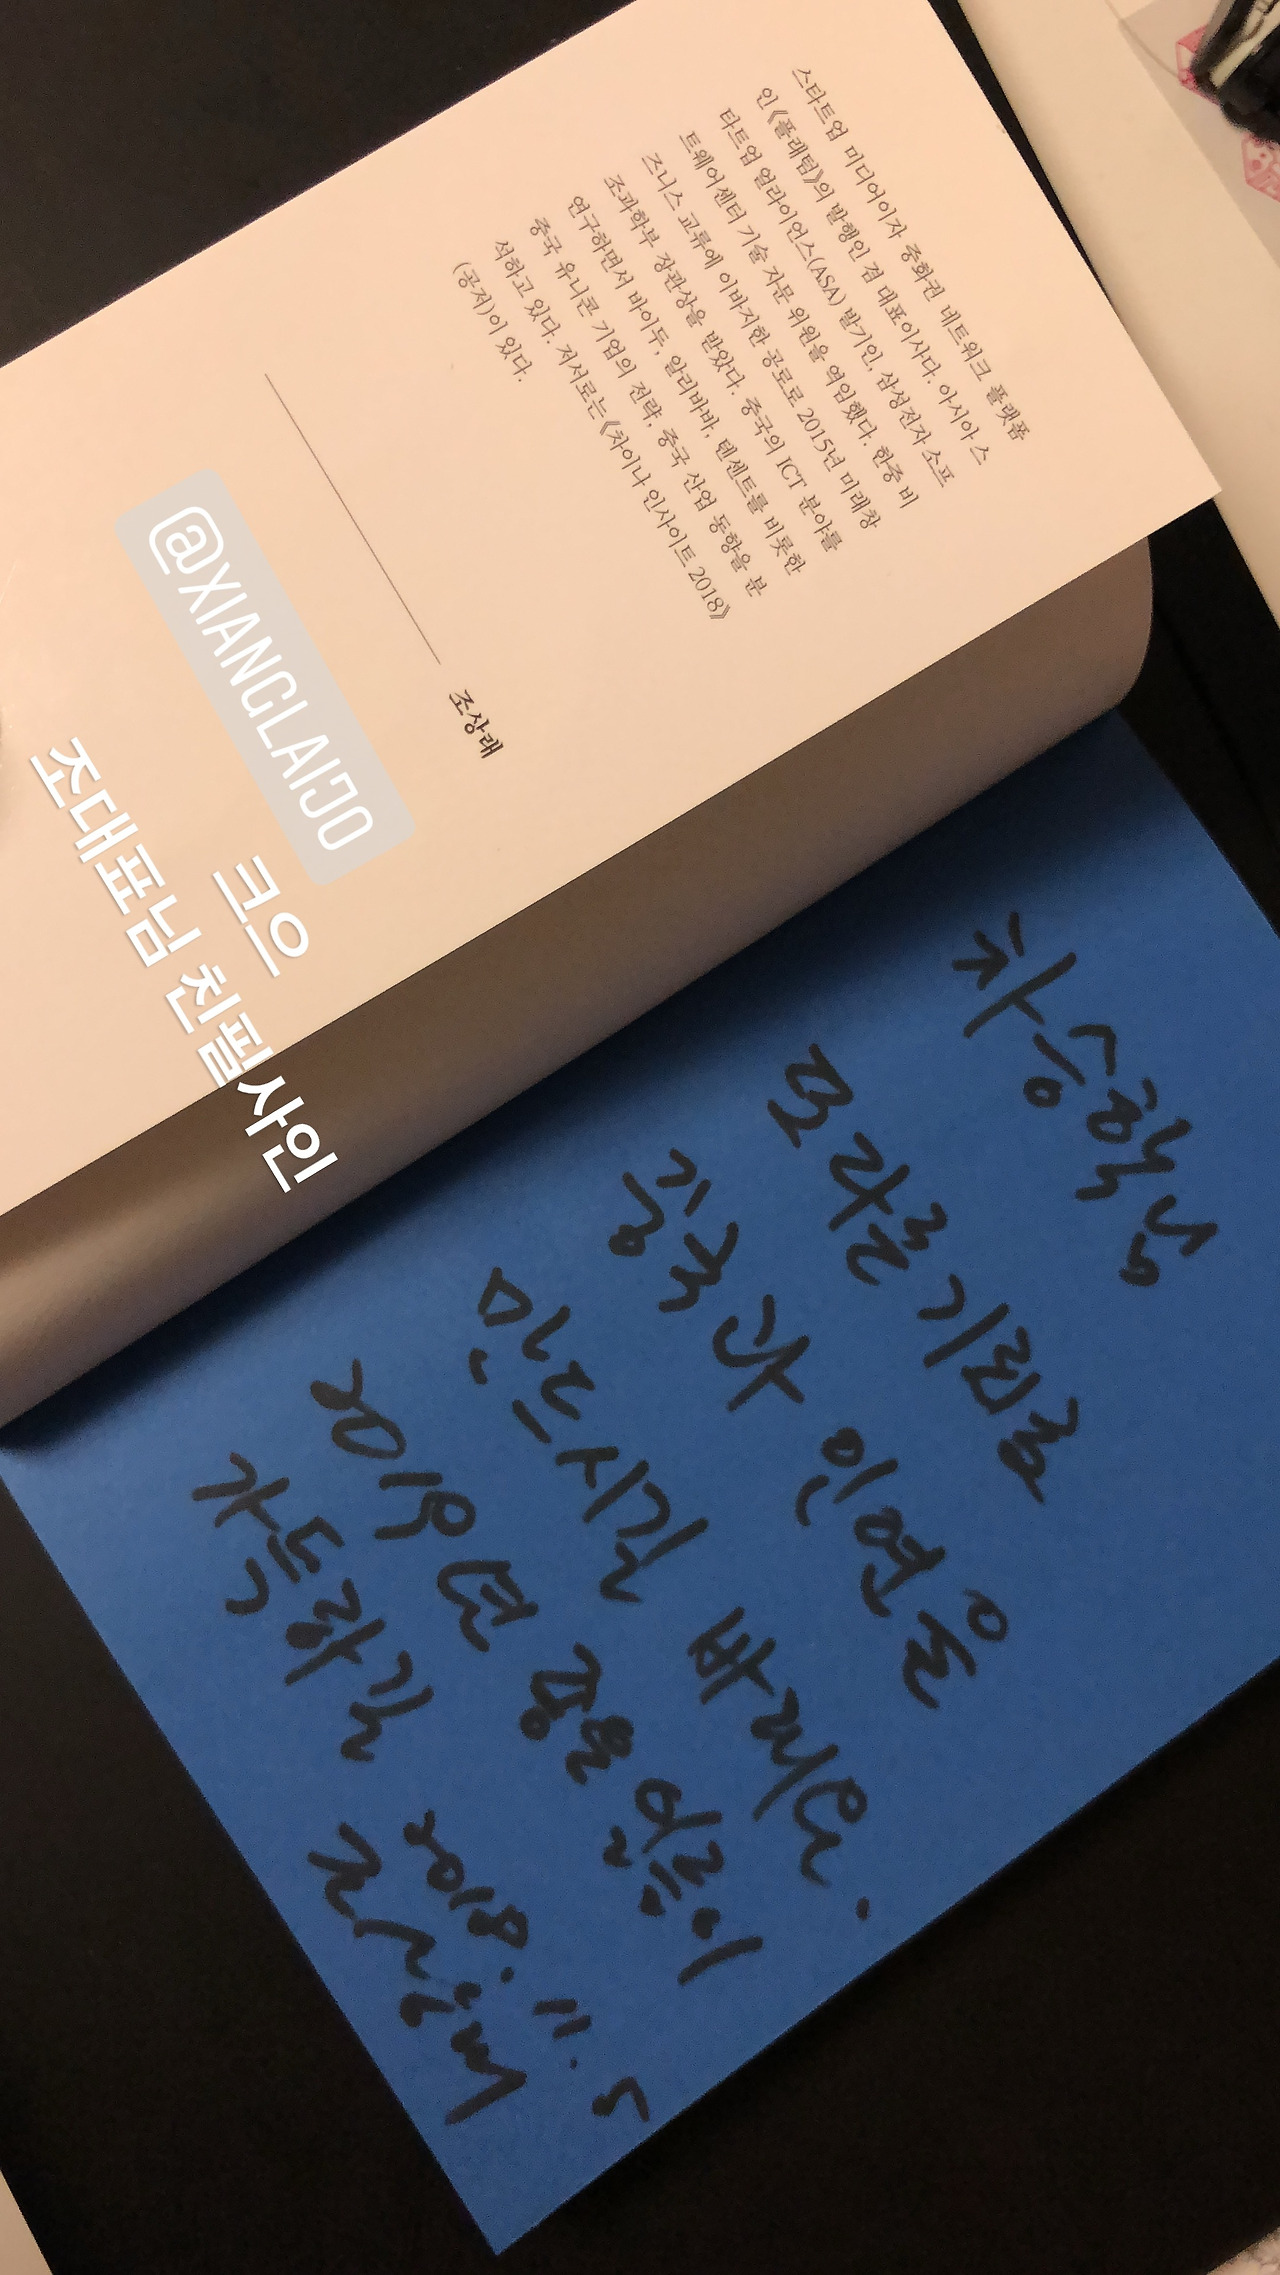 조상래
스타트업 미디어이자 중화권 네트워크 플랫폼
인 《플래텀》의 발행인 겸 대표이사다. 아시아 스
타트업 얼라이언스(ASA) 발기인, 삼성전자 소프
트웨어센터 기술 자문 위원을 역임했다. 한중 비
즈니스 교류에 이바지한 공로로 2015년 미래창
조과학부 장관상을 받았다. 중국의 ICT 분야를
연구하면서 바이두, 알리바바, 텐센트를 비롯한
중국 유니콘 기업의 전략, 중국 산업 동향을 분
석하고 있다. 저서로는 《차이나 인사이트 2018》
(공저)이 있다.
@XIANGLAIJO
크으
조대표님 친필사인
차승학님
모라클 기회로
중국과 인연을
만드시길 바래요.
2019년 좋은 일들이
가득하길
2018. 11. 5
조상래